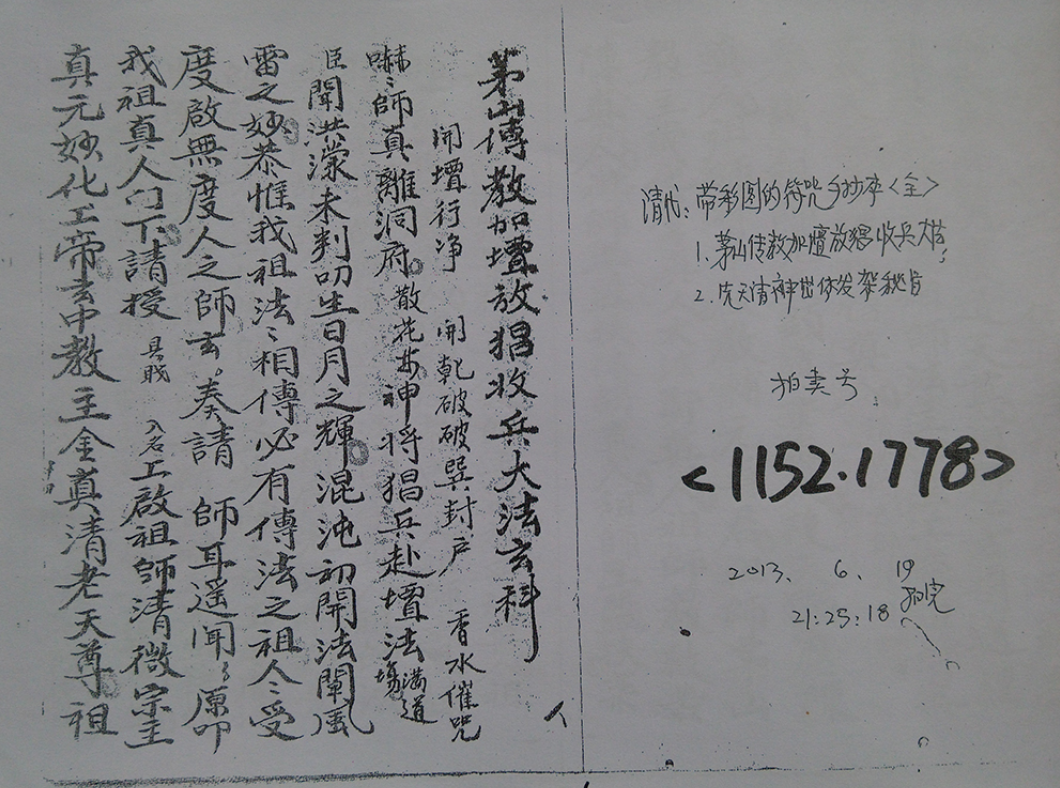 茅山傳教加壇放猖收兵大法玄科
開壇行净 開乾破破巽封户 香水催咒
嚇〻師真離洞府 散花步神将猖兵赴壇法 满道塲
臣聞洪濛未判叨生日月之輝混沌初開法闡風
雷之妙恭惟我祖法〻相傳必有傳法之祖人〻受
度啟無度人之師玄〻奏請 師耳遥聞〻原叩
我祖真人门下請授 具戝 入名 上啟祖師清微宗主
真元妙化上帝玄中教主金真清老天尊祖
清代：带彩图的符咒手抄本<全>
1.茅山传教加壇放猖收兵大法；
2.先天清神出体发架秘旨
拍卖号：
<1152.1778>
2013. 6. 19
21:25:18